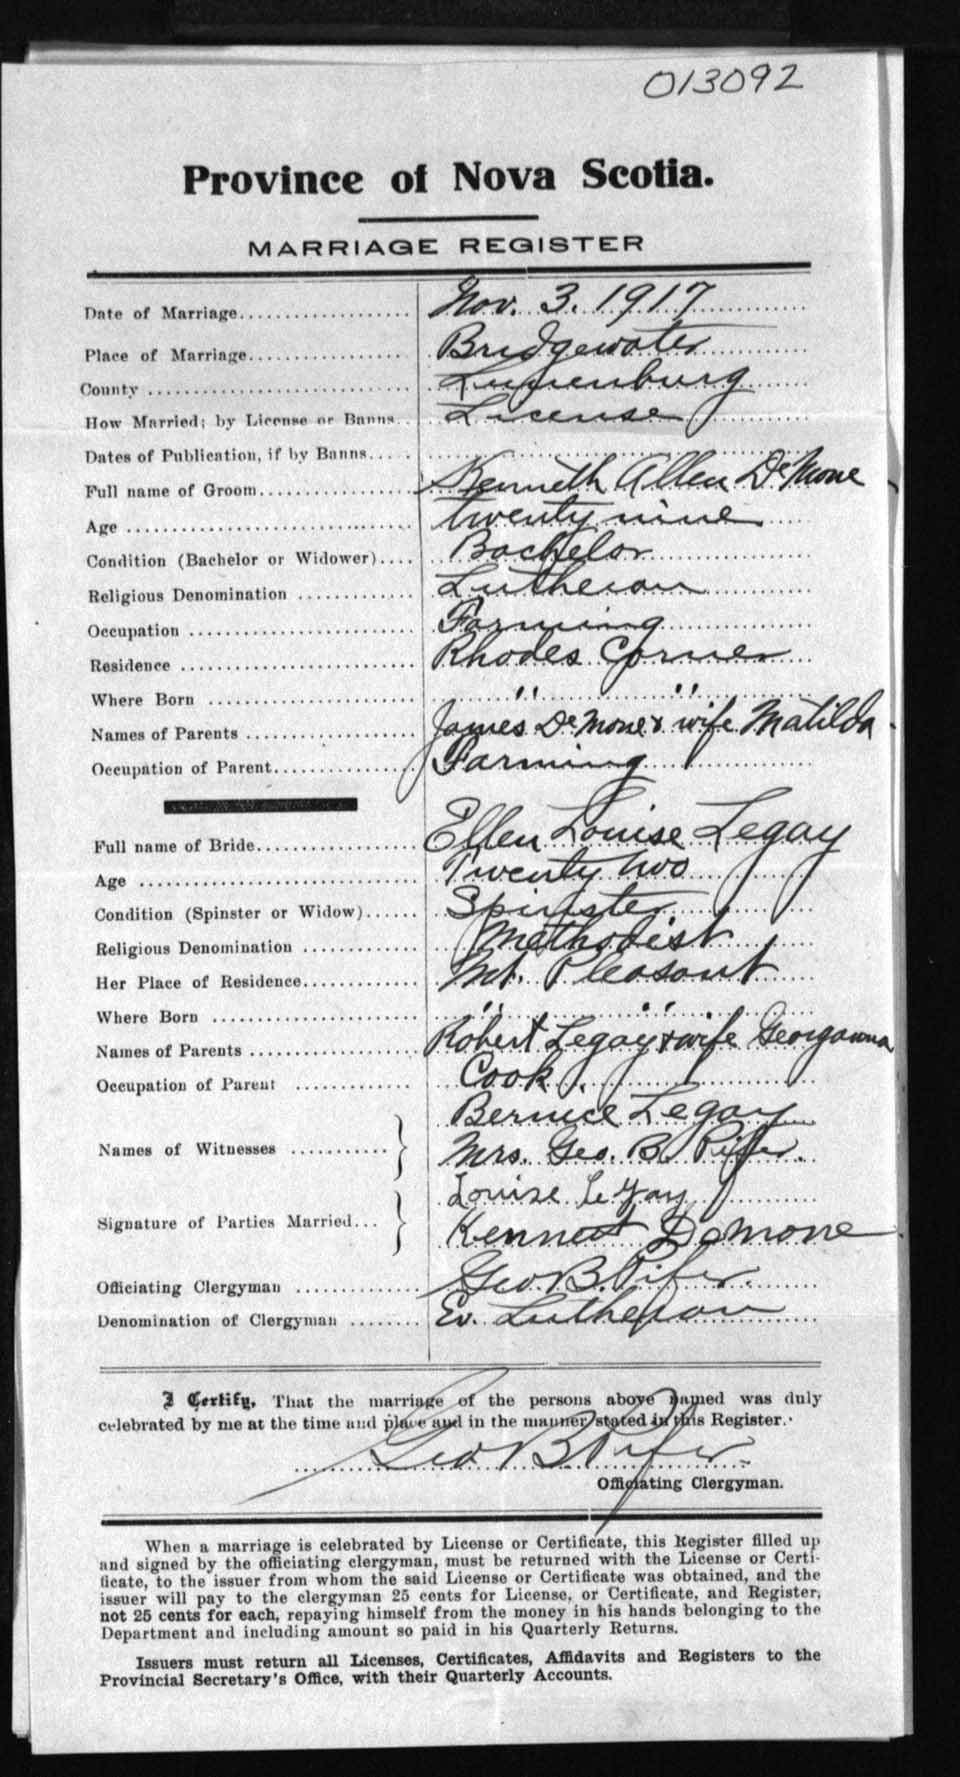 013092
Province of Nova Scotia.
MARRIAGE REGISTER
Date of Marriage Nov. 3. 1917
Place of Marriage Bridgewater
County Lunenburg
How Married; by License or Banns License
Dates of Publication, if by Banns
Full name of Groom Kenneth Allen DeMone
Age twenty nine
Condition (Bachelor or Widower) Bachelor
Religious Denomination Lutheran
Occupation Farming
Residence Rhodes Corner
Where Born " "
Names of Parents James DeMone & wife Matilda
Occupation of Parent Farming
Full name of Bride Ellen Louise Legay
Age Twenty two
Condition (Spinster or Widow) Spinster
Religious Denomination Methodist
Her Place of Residence Mt. Pleasant
Where Born " "
Names of Parents Robert Legay & wife Georganna
Occupation of Parent Cook
Names of Witnesses } Bernice Legay
Mrs. Geo. B. Pifer.
Signature of Parties Married } Louise LeGay
Kenneth DeMone
Officiating Clergyman Geo B. Pifer.
Denomination of Clergyman Ev. Lutheran
I Certify, That the marriage of the persons above named was duly
celebrated by me at the time and place and in the manner stated in this Register.
Geo B Pifer
Officiating Clergyman.
When a marriage is celebrated by License or Certificate, this Register filled up
and signed by the officiating clergyman, must be returned with the License or Certi-
ficate, to the issuer from whom the said License or Certificate was obtained, and the
issuer will pay to the clergyman 25 cents for License, or Certificate, and Register,
not 25 cents for each, repaying himself from the money in his hands belonging to the
Department and including amount so paid in his Quarterly Returns.
Issuers must return all Licenses, Certificates, Affidavits and Registers to the
Provincial Secretary's Office, with their Quarterly Accounts.